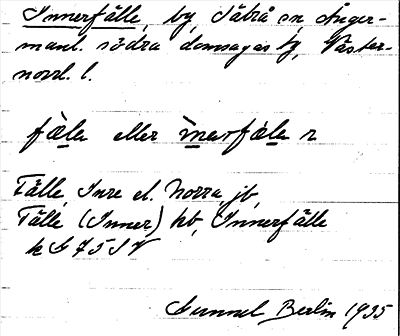 Innerfälle, by, Säbrå sn, Ånger-
manl. södra domsagas tg, Väster-
norrl. l.
fä̀lla eller ìnnerfä́lla n
Fälle, Inre el. Norra, jb,
Fälle (Inner) kb, Innerfälle
k G 75 S V
Gunnel Berlin 1935